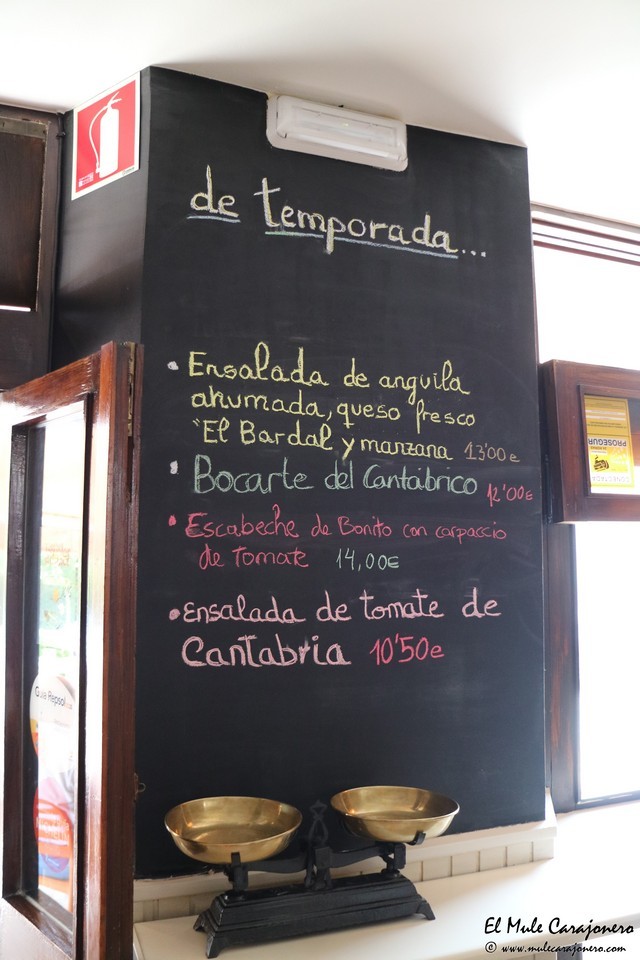 de temporada...
Ensalada de anguila
ahumada, queso fresco
"El Bardal y manzana 13'00€
Bocarte del Cantábrico 12'00€
Escabeche de Bonito con carpaccio
de Tomate 14,00€
Ensalada de tomate de
Cantabria 10'50€
PROSEGUR
CONECTADA
Guía Repsol
El Mule Carajonero
© www.mulecarajonero.com